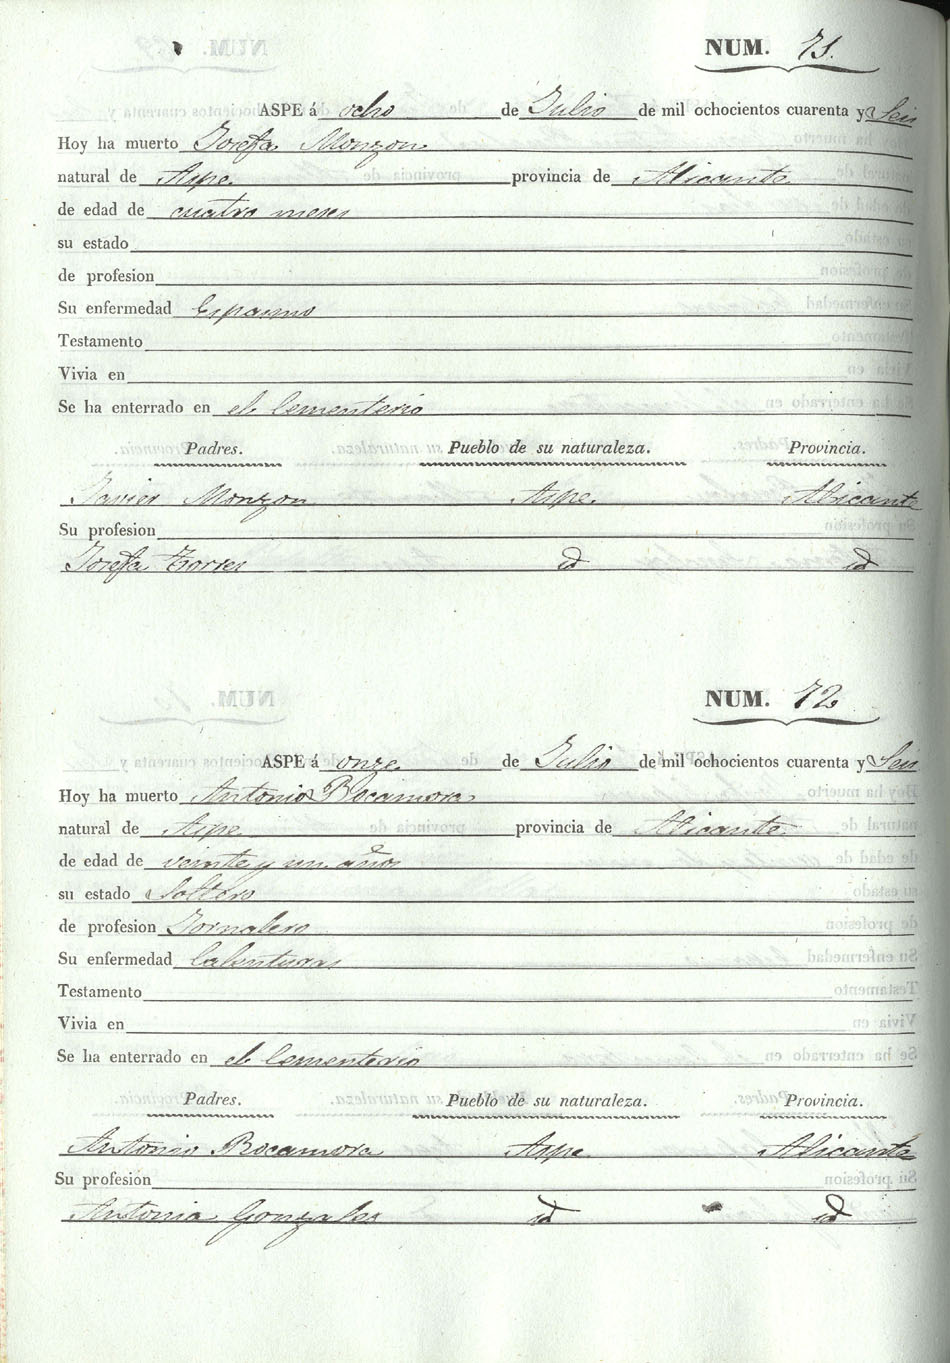 NUM. 71.
ASPE á ocho de Julio de mil ochocientos cuarenta y Seis
Hoy ha muerto Josefa Monzon
natural de Aspe provincia de Alicante
de edad de cuatro meses
su estado
de profesion
Su enfermedad Espasmo
Testamento
Vivia en
Se ha enterrado en el Cementerio
Padres. Pueblo de su naturaleza. Provincia.
Javier Monzon Aspe Alicante
Su profesion
Josefa Torres id id
NUM. 72
ASPE á onze de Julio de mil ochocientos cuarenta y Seis
Hoy ha muerto Antonio Rocamora
natural de Aspe provincia de Alicante
de edad de veinte y un años
su estado Soltero
de profesion Jornalero
Su enfermedad Calenturas
Testamento
Vivia en
Se ha enterrado en el Cementerio
Padres. Pueblo de su naturaleza. Provincia.
Antonio Rocamora Aspe Alicante
Su profesion
Antonia Gonzales id id